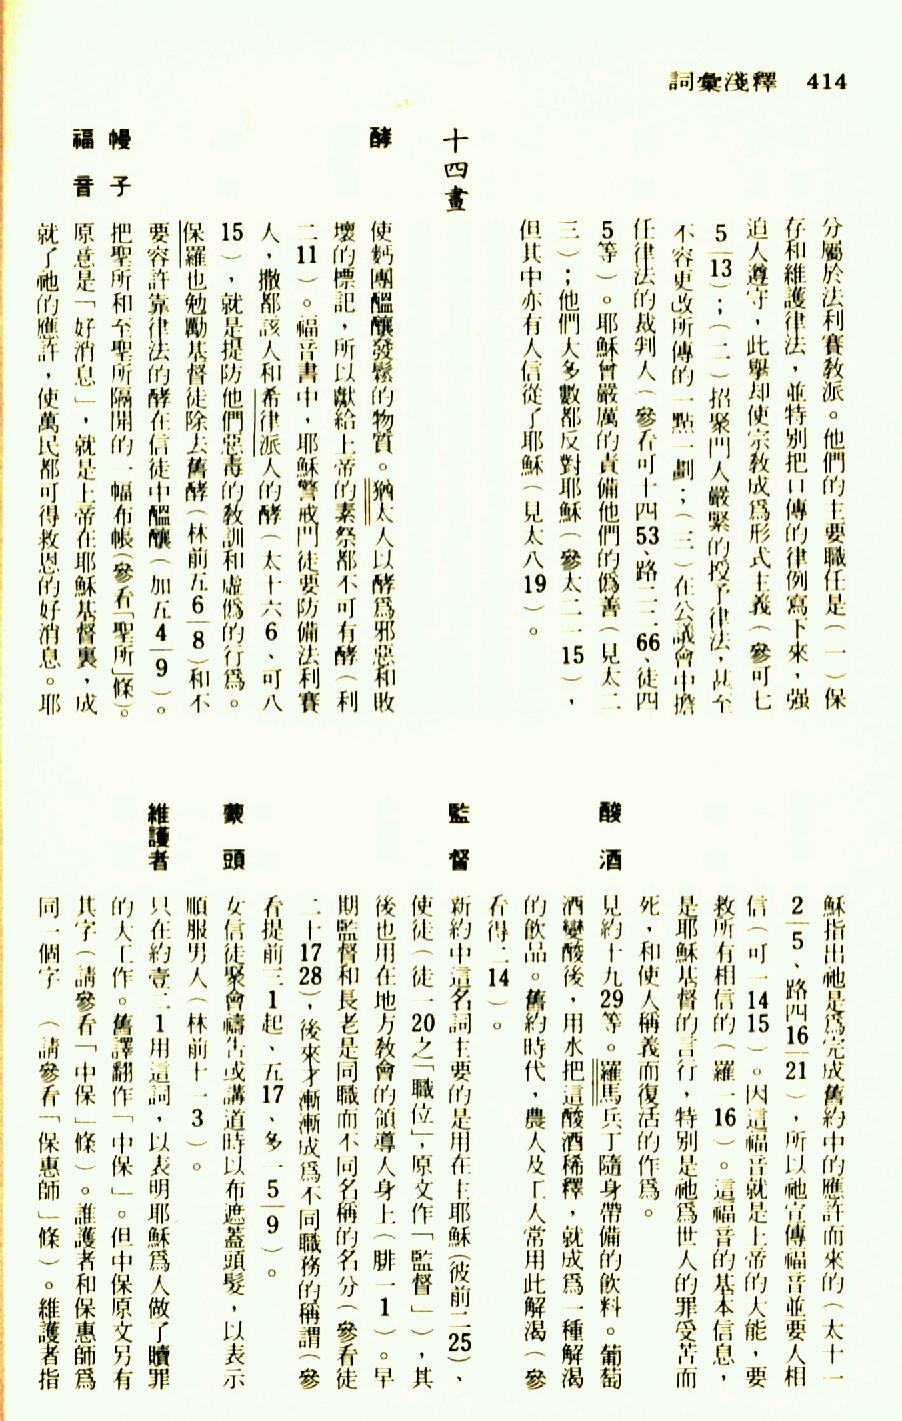 詞彙淺釋 414
分屬於法利賽敎派。他們的主要職任是（一）保
存和維護律法，並特別把口傳的律例寫下來，强
迫人遵守，此舉却使宗敎成爲形式主義（參可七
5—13）；（二）招聚門人嚴緊的授予律法，甚至
不容更改所傳的一點一劃；（三）在公議會中擔
任律法的裁判人（參看可十四53、路二二66、徒四
5等）。耶穌曾嚴厲的責備他們的僞善（見太二
三）；他們大多數都反對耶穌（參太二一15），
但其中亦有人信從了耶穌（見太八19）。
十四畫
酵
使麪團醞釀發鬆的物質。猶太人以酵爲邪惡和敗
壞的標記，所以獻給上帝的素祭都不可有酵（利
二11）。福音書中，耶穌警戒門徒要防備法利賽
人，撒都該人和希律派人的酵（太十六6、可八
15），就是提防他們惡毒的敎訓和虛僞的行爲。
保羅也勉勵基督徒除去舊酵（林前五6—8）和不
要容許靠律法的酵在信徒中醞釀（加五4—9）。
幔子
把聖所和至聖所隔開的一幅布帳（參看「聖所」條）。
福音
原意是「好消息」，就是上帝在耶穌基督裏，成
就了祂的應許，使萬民都可得救恩的好消息。耶
穌指出祂是爲完成舊約中的應許而來的（太十一
2—5、路四16—21），所以祂宣傳福音並要人相
信（可一14 15）。因這福音就是上帝的大能，要
救所有相信的（羅一16）。這福音的基本信息，
是耶穌基督的言行，特別是祂爲世人的罪受苦而
死，和使人稱義而復活的作爲。
酸酒
見約十九29等。羅馬兵丁隨身帶備的飲料。葡萄
酒變酸後，用水把這酸酒稀釋，就成爲一種解渴
的飲品。舊約時代，農人及工人常用此解渴（參
看得二14）。
監督
新約中這名詞主要的是用在主耶穌（彼前二25）、
使徒（徒一20之「職位」，原文作「監督」），其
後也用在地方敎會的領導人身上（腓一1）。早
期監督和長老是同職而不同名稱的名分（參看徒
二十17 28），後來才漸漸成爲不同職務的稱謂（參
看提前三1起、五17、多一5—9）。
蒙頭
女信徒聚會禱告或講道時以布遮蓋頭髮，以表示
順服男人（林前十一3）。
維護者
只在約壹二1用這詞，以表明耶穌爲人做了贖罪
的大工作。舊譯翻作「中保」。但中保原文另有
其字（請參看「中保」條）。誰護者和保惠師爲
同一個字　（請參看「保惠師」條）。維護者指